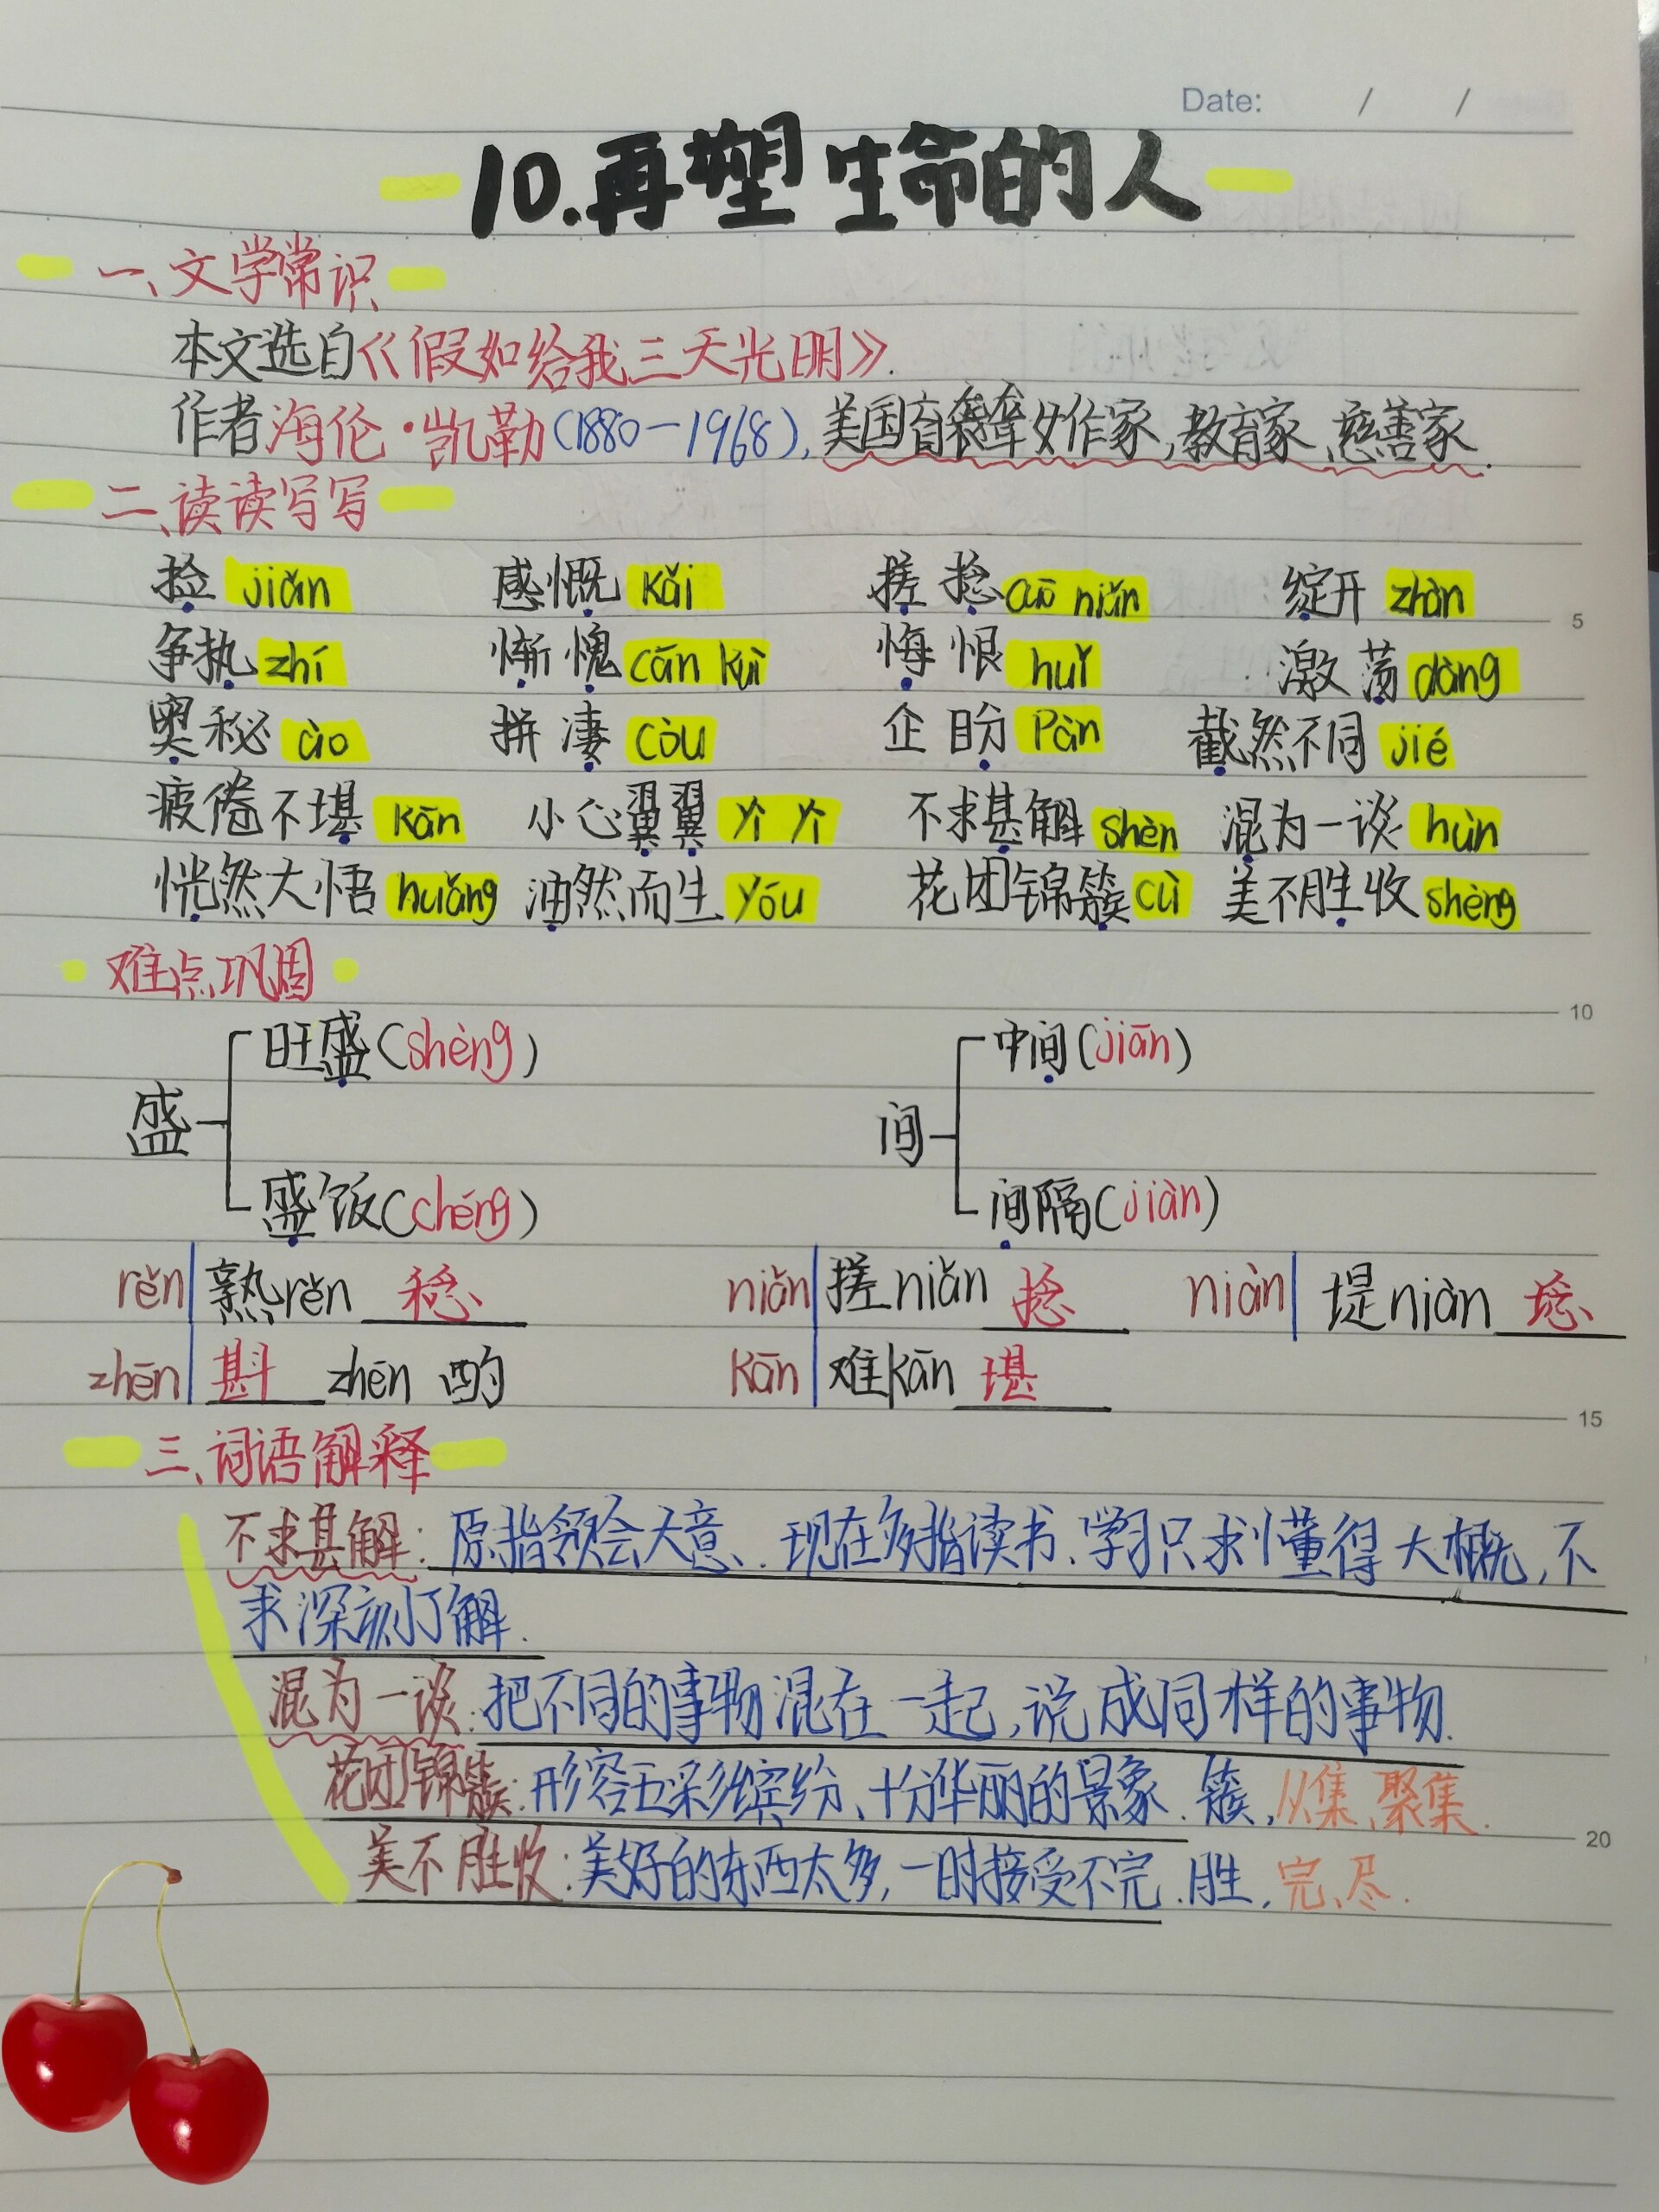 Date: / /
10.再塑生命的人
一、文学常识
本文选自《假如给我三天光明》.
作者海伦·凯勒(1880-1968),美国盲聋女作家,教育家、慈善家.
二、读读写写
捡 jiǎn 感慨 kǎi 搓捻 cuō niǎn 绽开 zhàn
5
争执 zhí 惭愧 cán kuì 悔恨 huǐ 激荡 dàng
奥秘 ào 拼凄 còu 企盼 pàn 截然不同 jié
疲倦不堪 kān 小心翼翼 yì yì 不求甚解 shèn 混为一谈 hùn
恍然大悟 huǎng 油然而生 yóu 花团锦簇 cù 美不胜收 shèng
难点巩固
10
旺盛(shèng) 中间(jiān)
盛 间
盛饭(chéng) 间隔(jiàn)
rěn 熟rěn 稔 niǎn 搓niǎn 捻 niàn 堤niàn 埝
zhēn 斟 zhēn 酌 kān 难kān 堪
15
三、词语解释
不求甚解:原指领会大意、现在多指读书、学习只求懂得大概,不
求深刻了解.
混为一谈:把不同的事物混在一起,说成同样的事物.
花团锦簇:形容五彩缤纷、十分华丽的景象.簇,从集、聚集.
20
美不胜收:美好的东西太多,一时接受不完.胜,完、尽.